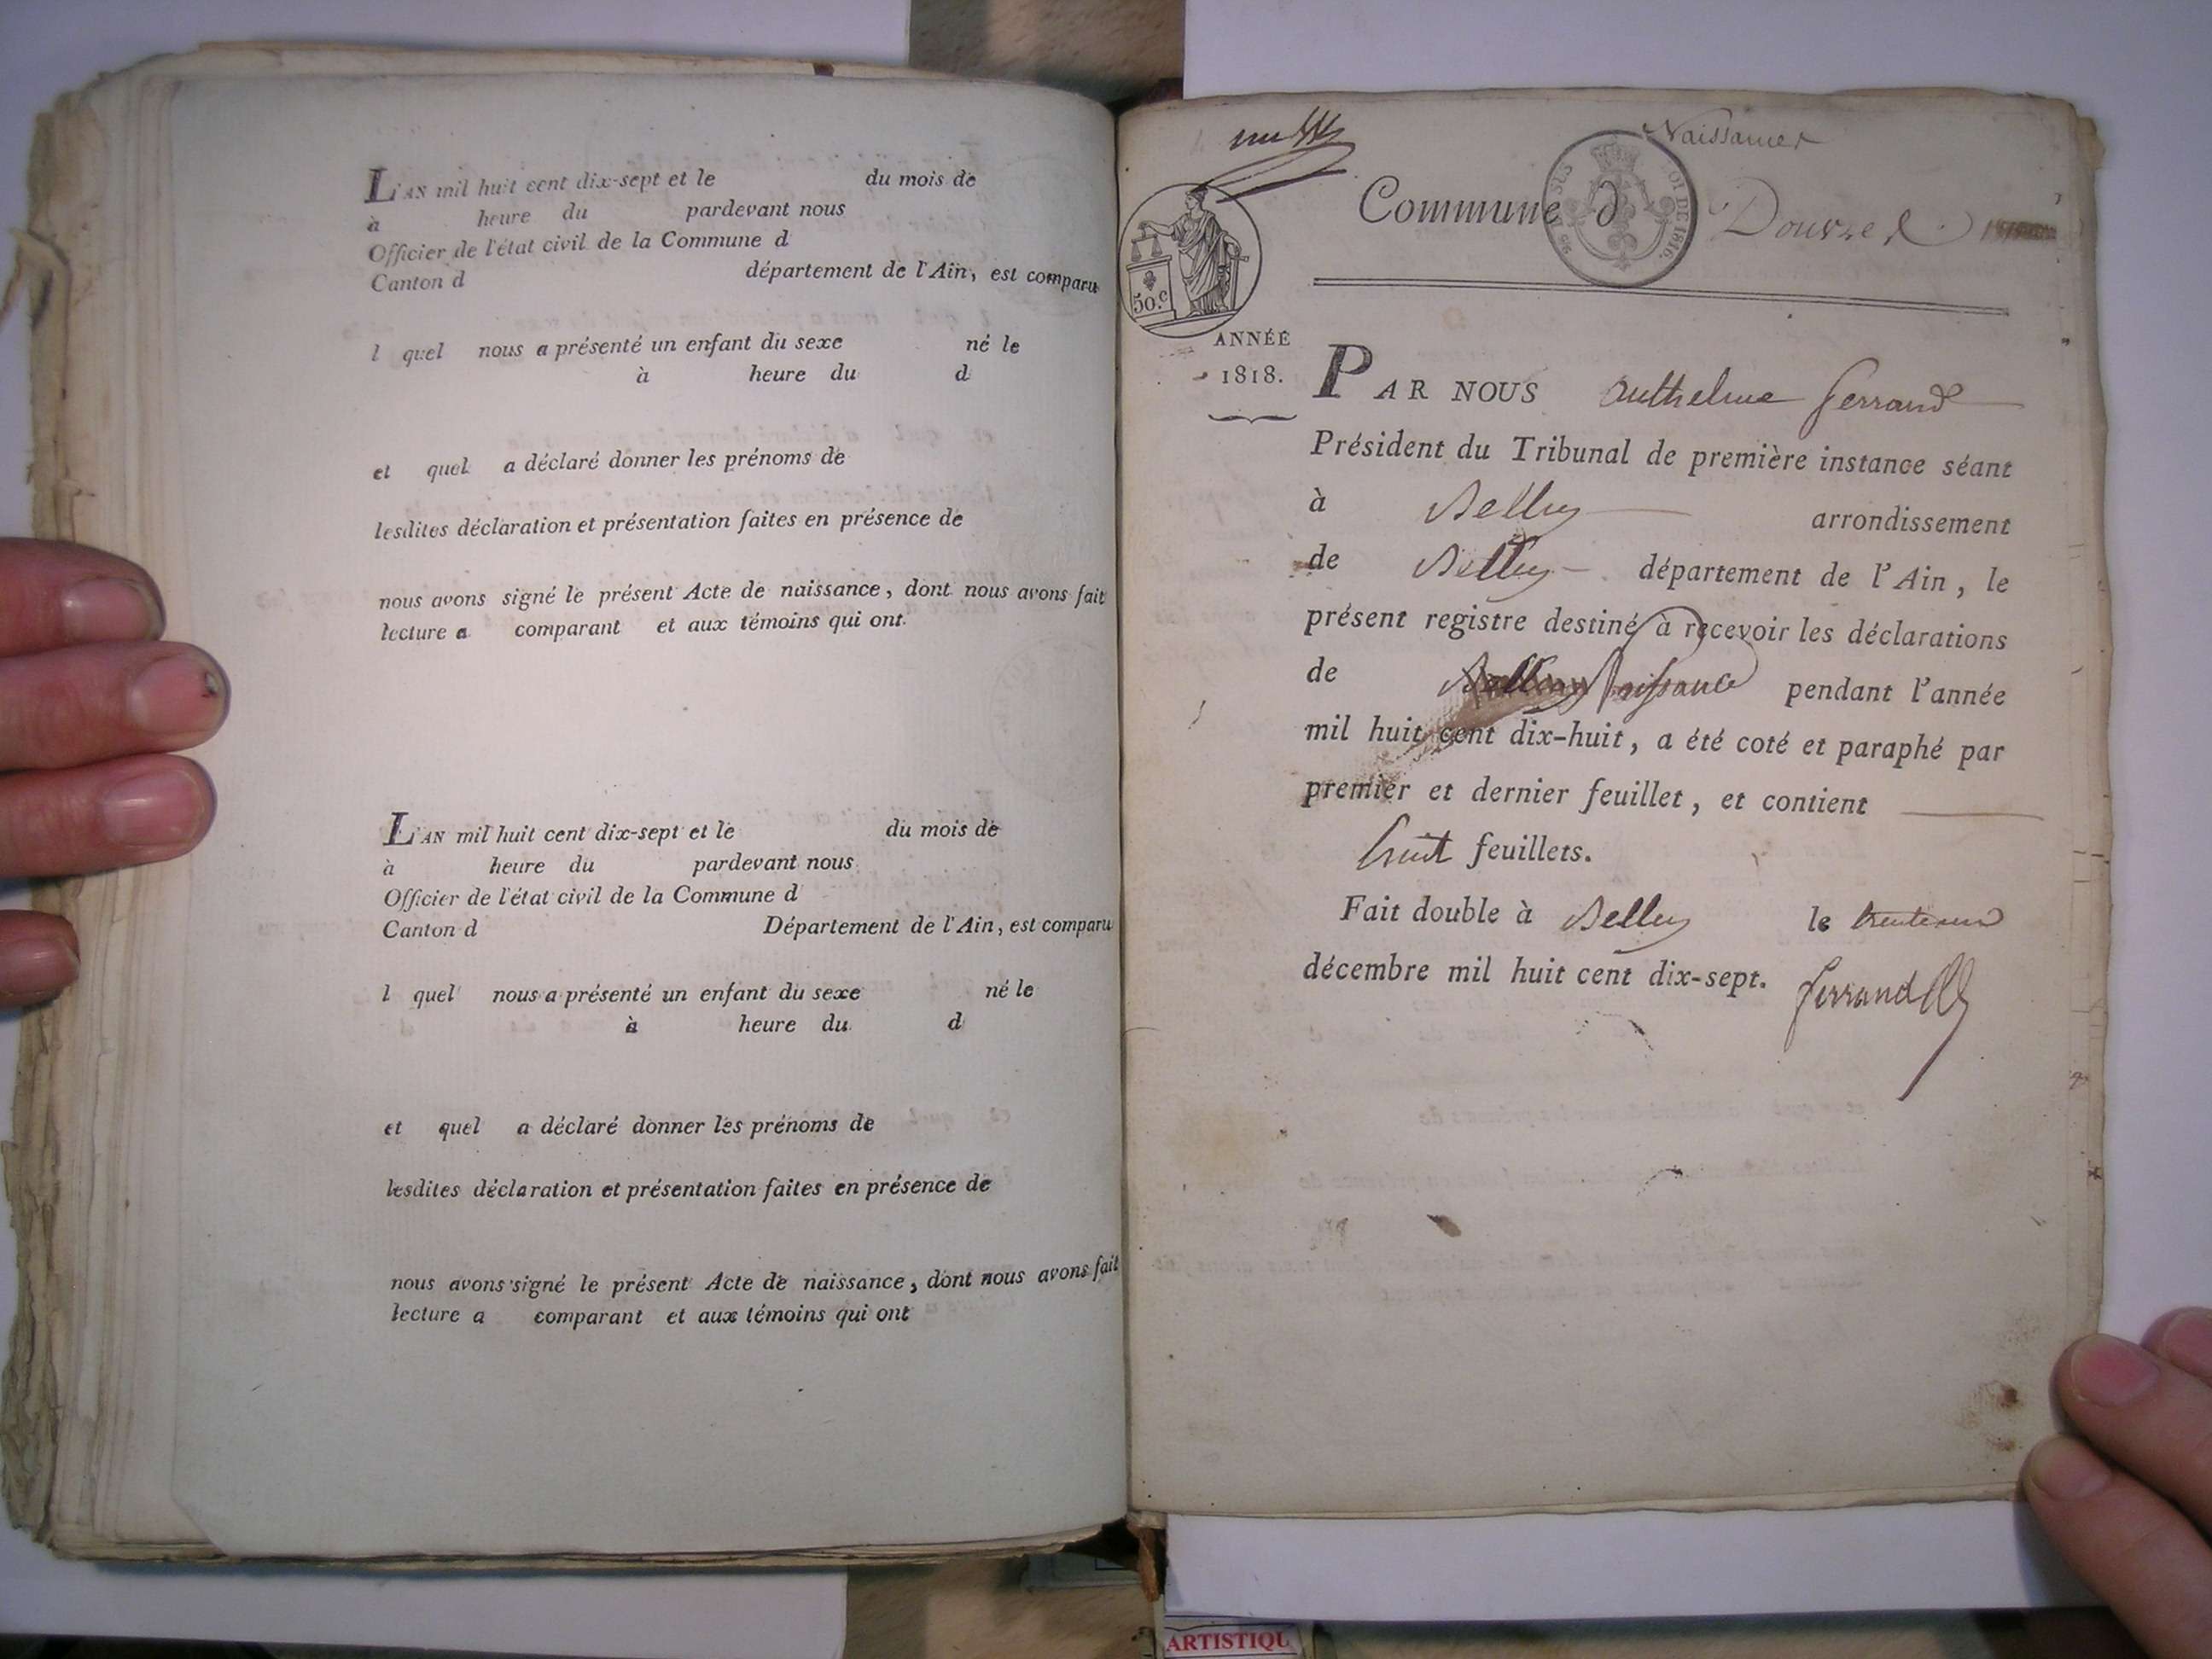 L'AN mil huit cent dix-sept et le du mois de
à heure du pardevant nous
Officier de l'état civil de la Commune d
Canton d département de l'Ain, est comparu
l quel nous a présenté un enfant du sexe né le
à heure du d
et quel a déclaré donner les prénoms de
lesdites déclaration et présentation faites en présence de
nous avons signé le présent Acte de naissance, dont nous avons fait
lecture a comparant et aux témoins qui ont
L'AN mil huit cent dix-sept et le du mois de
à heure du pardevant nous
Officier de l'état civil de la Commune d
Canton d Département de l'Ain, est comparu
l quel nous a présenté un enfant du sexe né le
à heure du d
et quel a déclaré donner les prénoms de
lesdites déclaration et présentation faites en présence de
nous avons signé le présent Acte de naissance, dont nous avons fait
lecture a comparant et aux témoins qui ont
Naissances
Commune d Douvres
50.c
OI DE 1816.
ANNÉE
1818.
PAR NOUS Anthelme ferrand
Président du Tribunal de première instance séant
à Belley arrondissement
de Belley département de l'Ain, le
présent registre destiné à recevoir les déclarations
de Naissance pendant l'année
mil huit cent dix-huit, a été coté et paraphé par
premier et dernier feuillet, et contient
huit feuillets.
Fait double à Belley le trente un
décembre mil huit cent dix-sept.
ferrand
ARTISTIQU